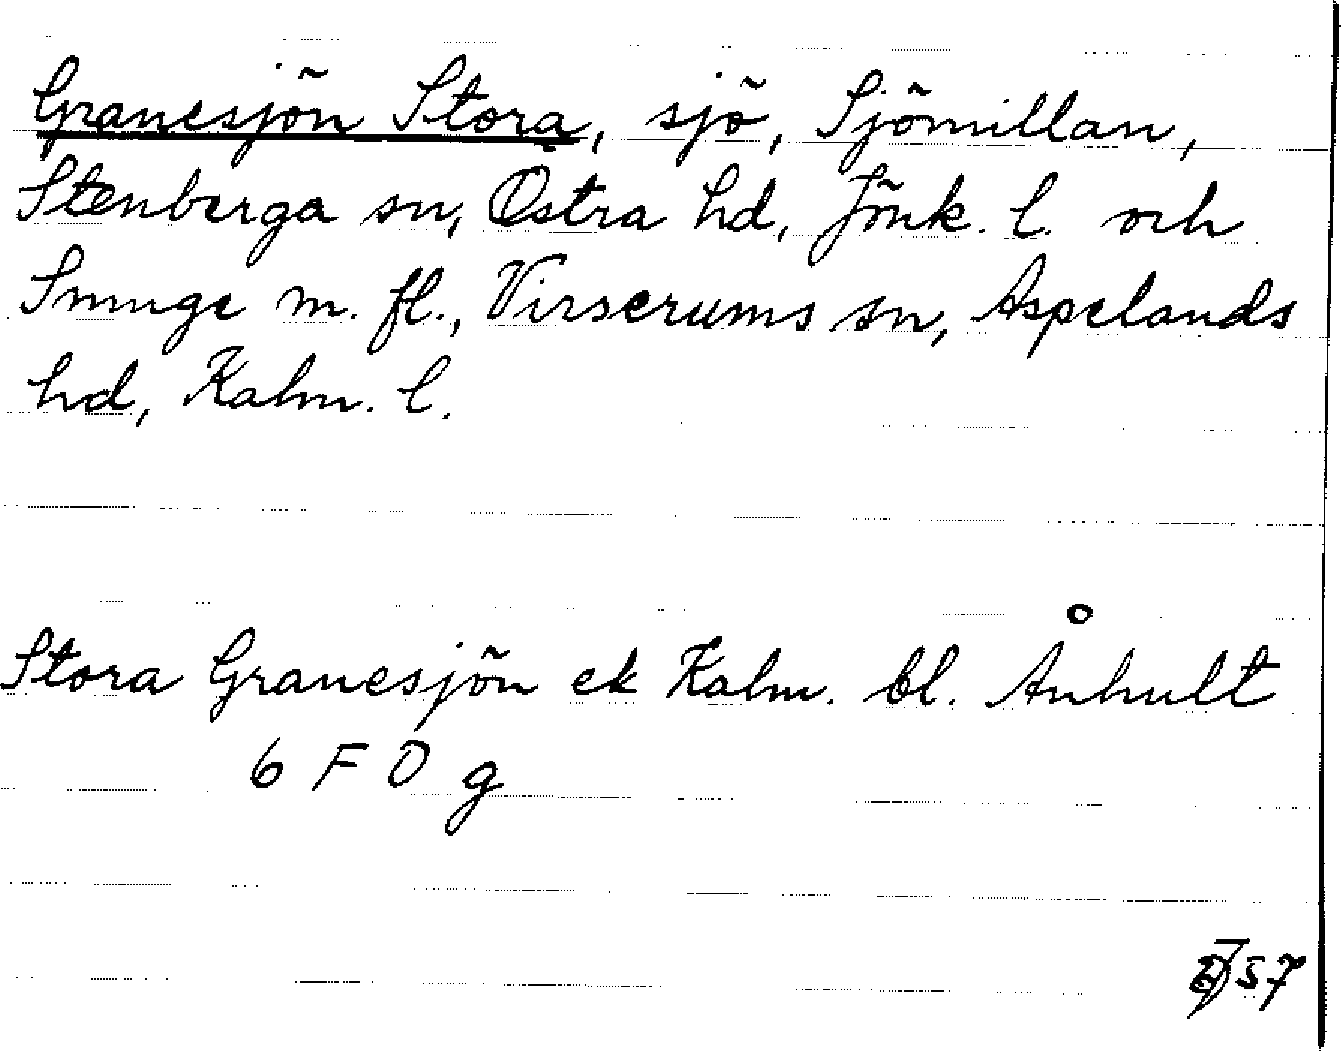 Granesjön Stora, sjö, Sjömillan,
Stenberga sn, Östra hd, Jönk. l. och
Smuge m. fl., Virserums sn, Aspelands
hd, Kalm. l.
Stora Granesjön ek Kalm. bl. Ånhult
6 F O g
57